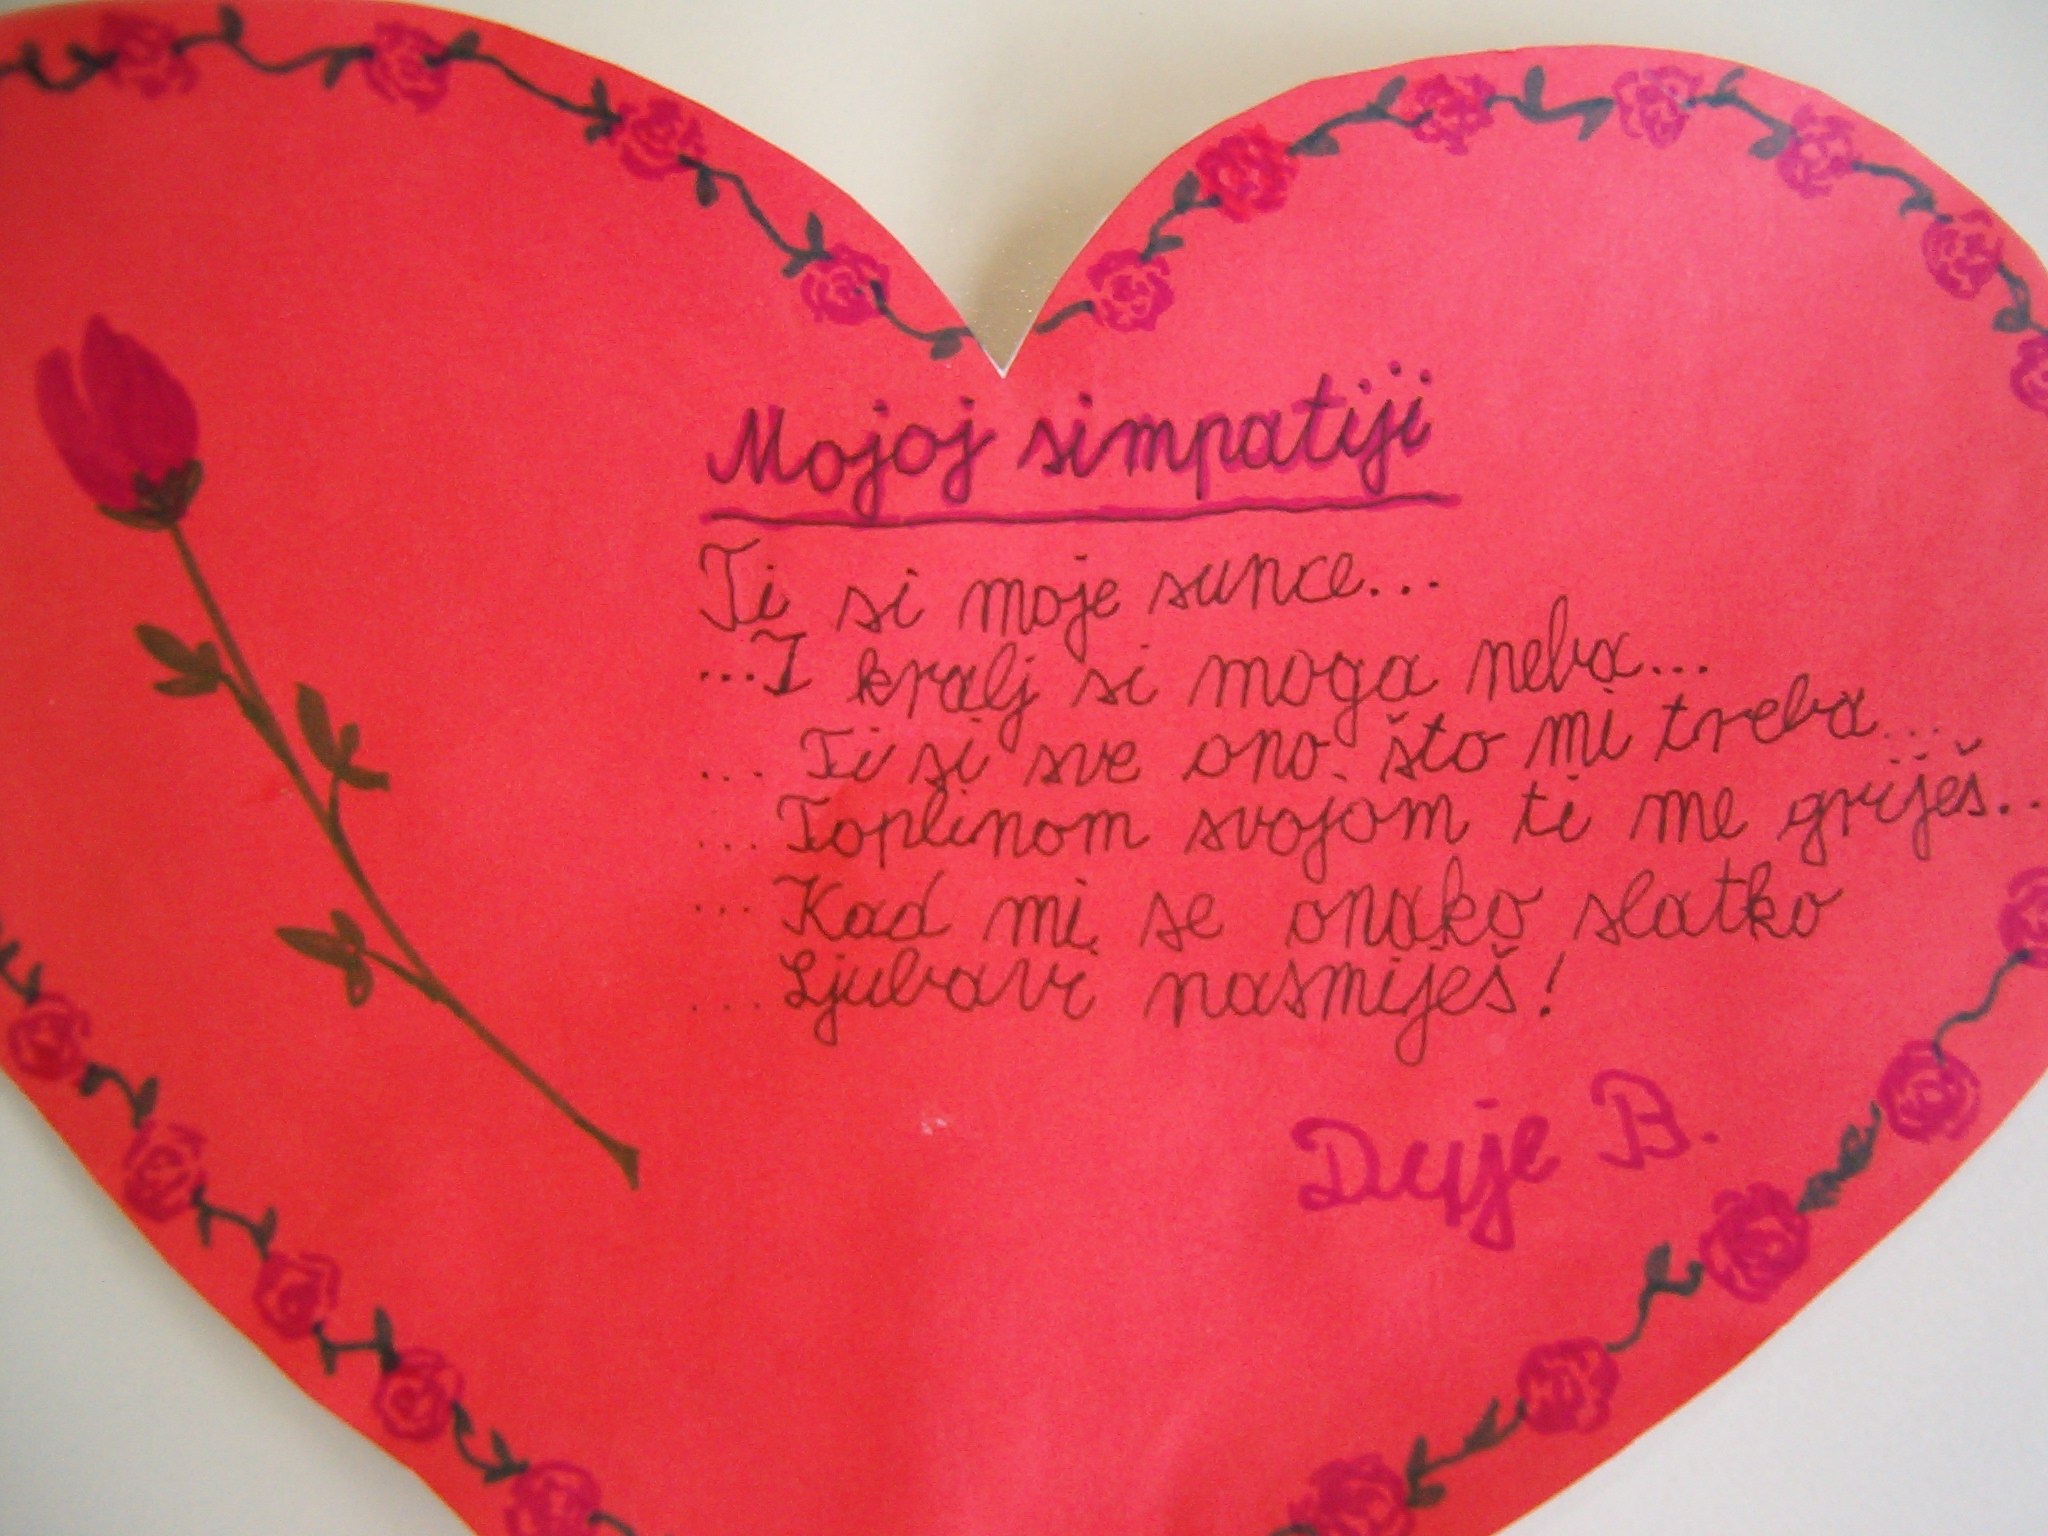 Mojoj simpatiji
Ti si moje sunce...
...I kralj si moga neba...
... Ti si sve ono što mi treba...
... Toplinom svojom ti me griješ...
... Kad mi se onako slatko
... Ljubavi nasmiješ!
Duje B.